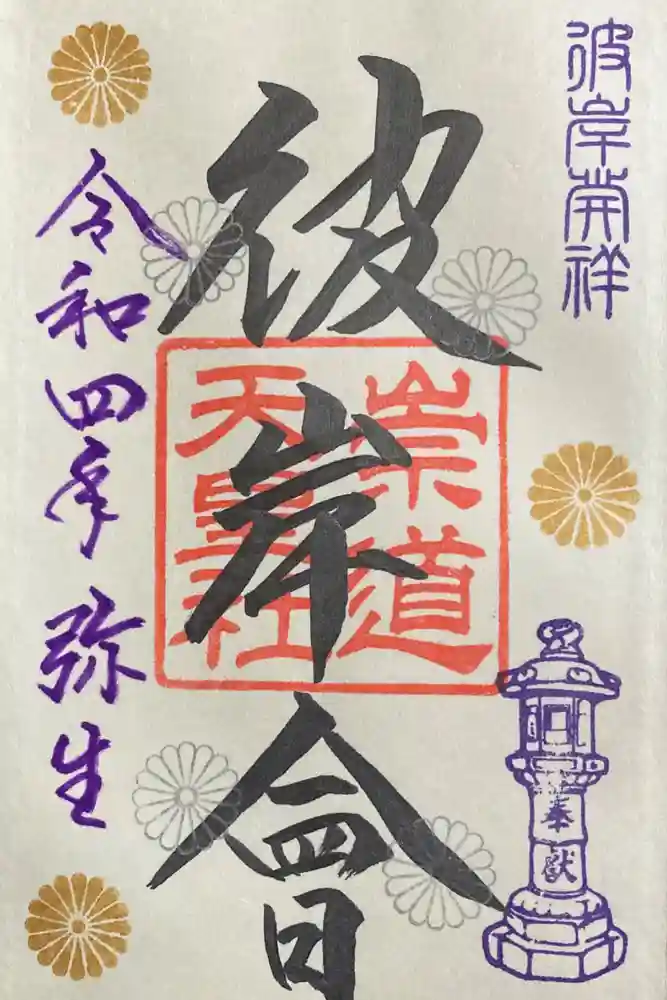 彼岸開祥
彼岸會
崇道
天皇社
令和四年 弥生
奉献